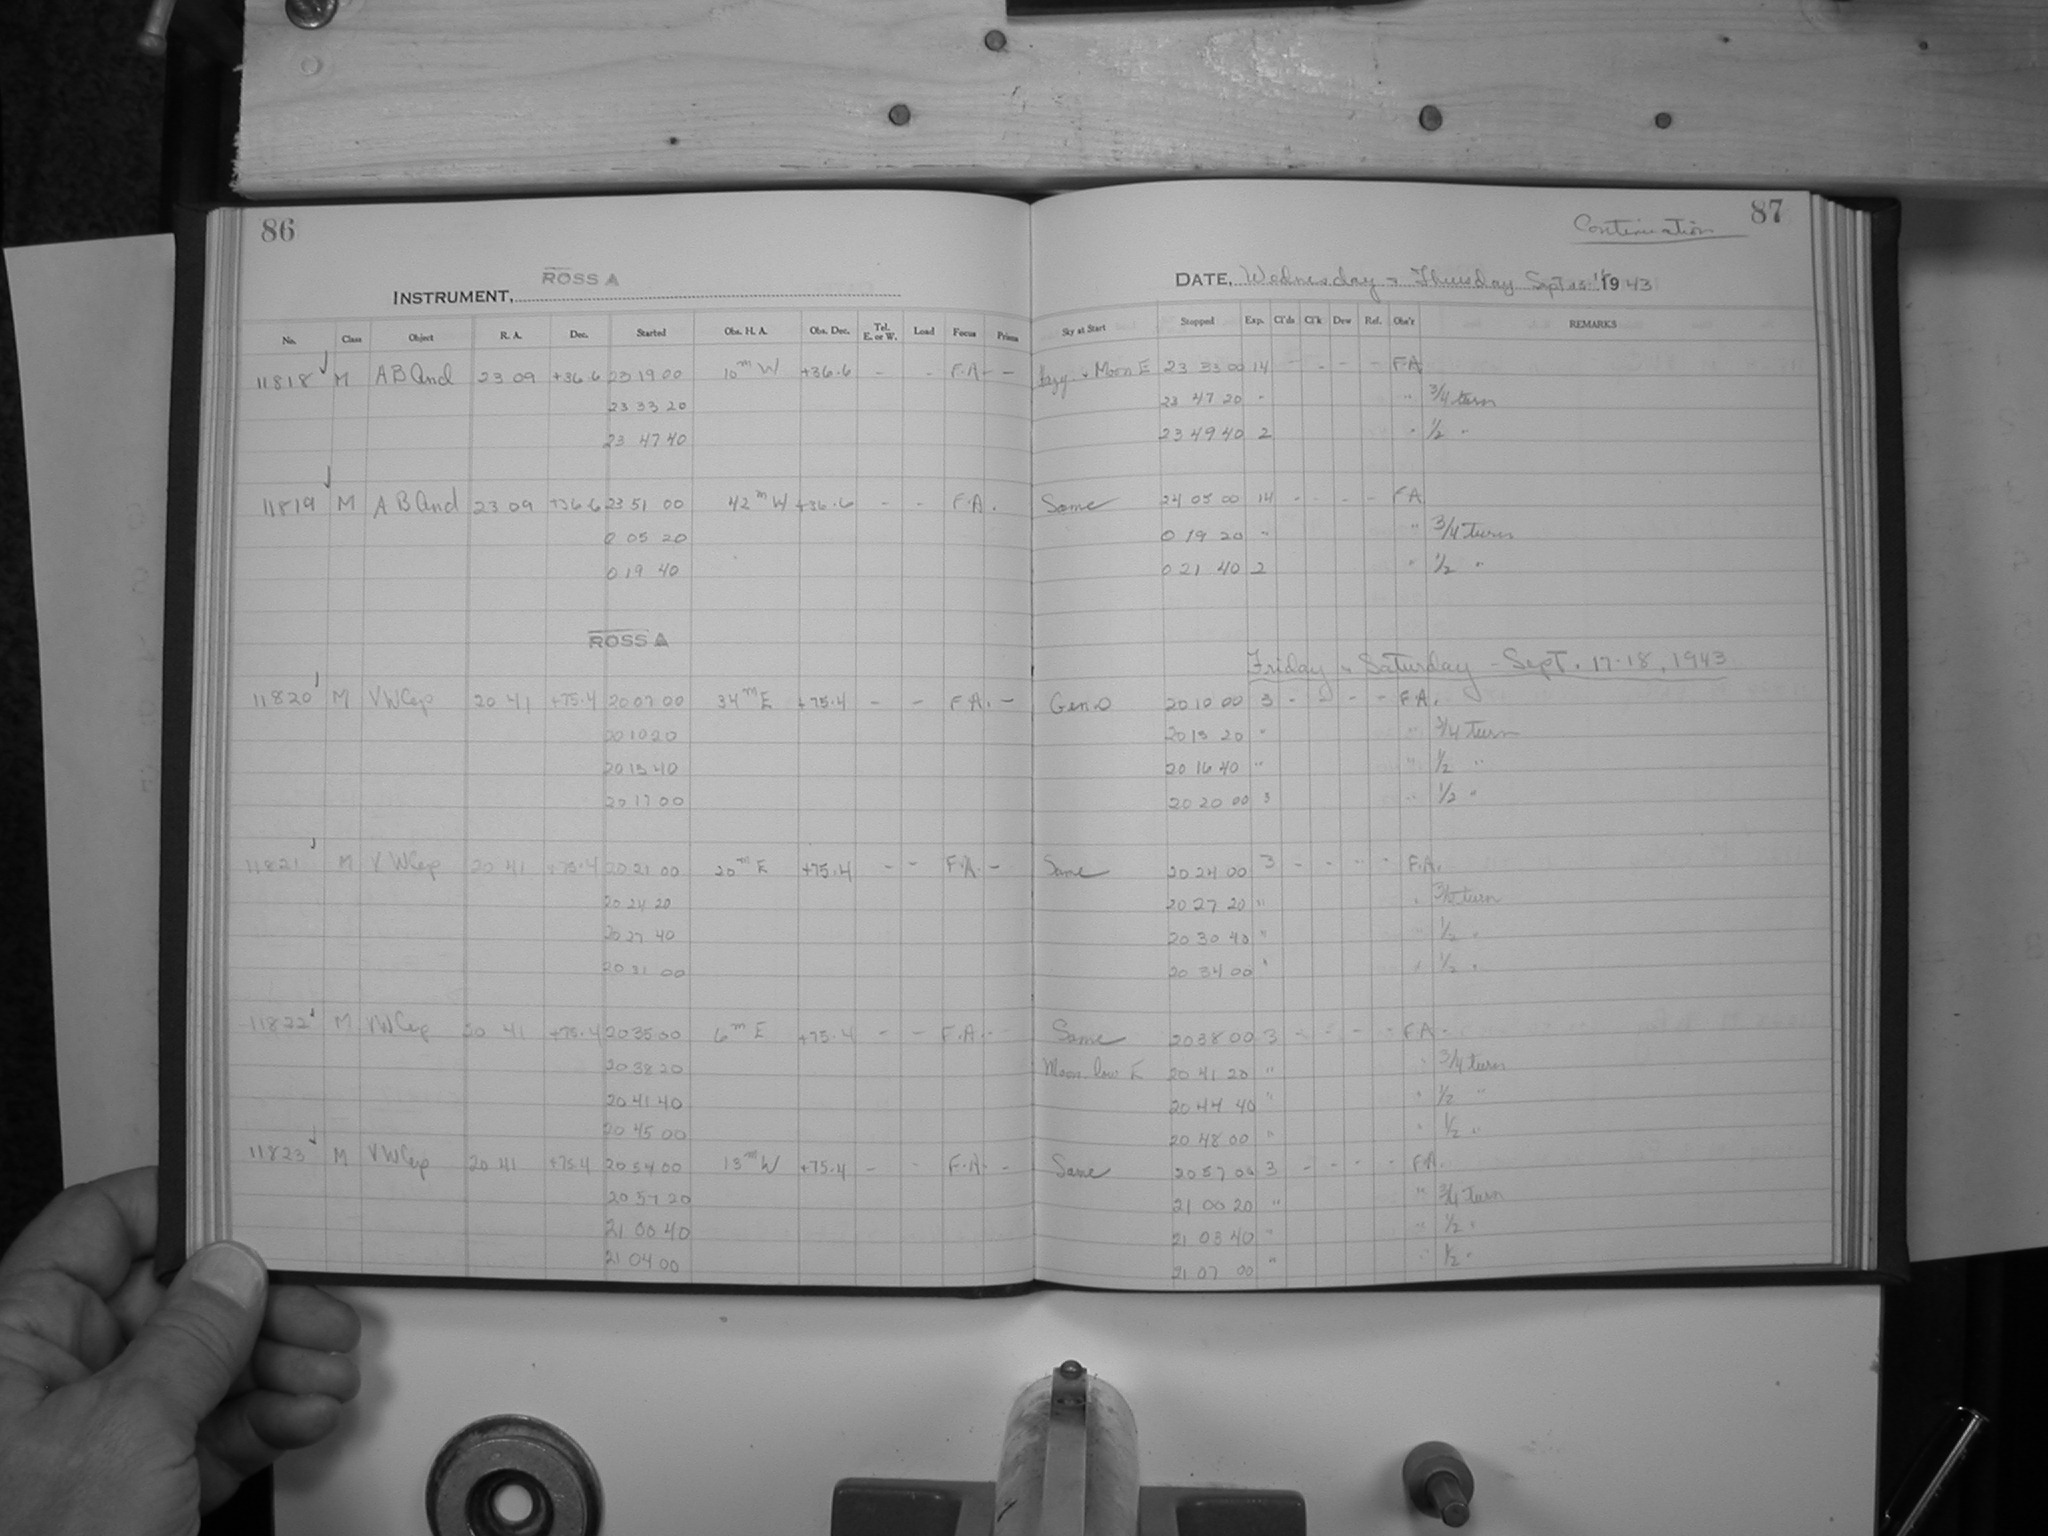 86
ROSS A
INSTRUMENT,
No. Class Object R. A. Dec. Started Obs. H. A. Obs. Dec. Tel. E. or W. Load Focus Prisms
11818 M AB And 23 09 +36.6 23 19 00 10m W +36.6 - - F.A - -
23 33 20
23 47 40
11819 M AB And 23 09 +36.6 23 51 00 42m W +36.6 - - F.A.
0 05 20
0 19 40
ROSS A
11820 M VW Cep 20 41 +75.4 20 07 00 34m E +75.4 - - F.A. -
20 10 20
20 13 40
20 17 00
11821 M VW Cep 20 41 +75.4 20 21 00 20m E +75.4 - - F.A. -
20 24 20
20 27 40
20 31 00
11822 M VW Cep 20 41 +75.4 20 35 00 6m E +75.4 - - F.A. -
20 38 20
20 41 40
20 45 00
11823 M VW Cep 20 41 +75.4 20 54 00 13m W +75.4 - - F.A. -
20 57 20
21 00 40
21 04 00
87
Continuation
DATE, Wednesday - Thursday Sept 1943
Sky at Start Stopped Exp. Cl'ds Cl'k Dew Rel. Obs'r REMARKS
Moon E 23 33 00 14 - - - - F.A
23 47 20 " " 3/4 turn
23 49 40 2 " 1/2 "
Same 24 05 00 14 - - - - FA
0 19 20 " " 3/4 turn
0 21 40 2 " 1/2 "
Friday - Saturday - Sept. 17-18, 1943
20 10 00 3 - - - - F A.
20 13 20 " " 3/4 turn
20 16 40 " " 1/2 "
20 20 00 3 " 1/2 "
Same 20 24 00 3 - - - - F.A.
20 27 20 " " turn
20 30 40 " 1/2 "
20 34 00 " " 1/2 "
Same 20 38 00 3 - - - - F A -
Moon low E 20 41 20 " " 3/4 turn
20 44 40 " " 1/2 "
20 48 00 " " 1/2 "
Same 20 57 00 3 - - - - F A.
21 00 20 " " 3/4 turn
21 03 40 " " 1/2 "
21 07 00 " " 1/2 "